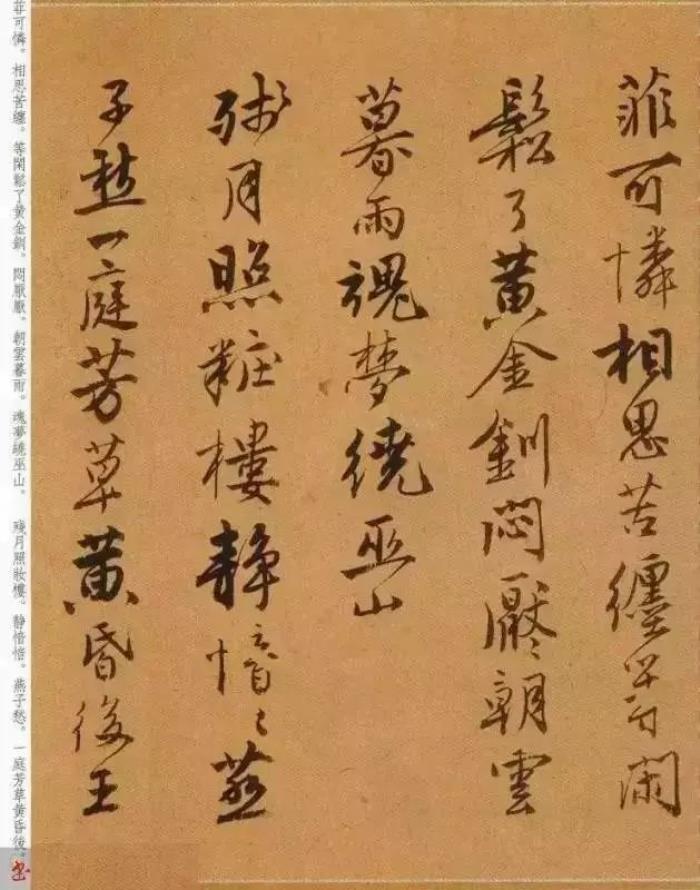 菲可憐相思苦纏等閑
鬆了黄金釧悶厭〻朝雲
暮雨魂夢繞巫山
殘月照粧樓靜愔〻燕
子愁一庭芳草黄昏後王
菲可憐。相思苦纏。等閑鬆了黄金釧。悶厭厭。朝雲暮雨。魂夢繞巫山。 殘月照妝樓。静愔愔。燕子愁。一庭芳草黄昏後。